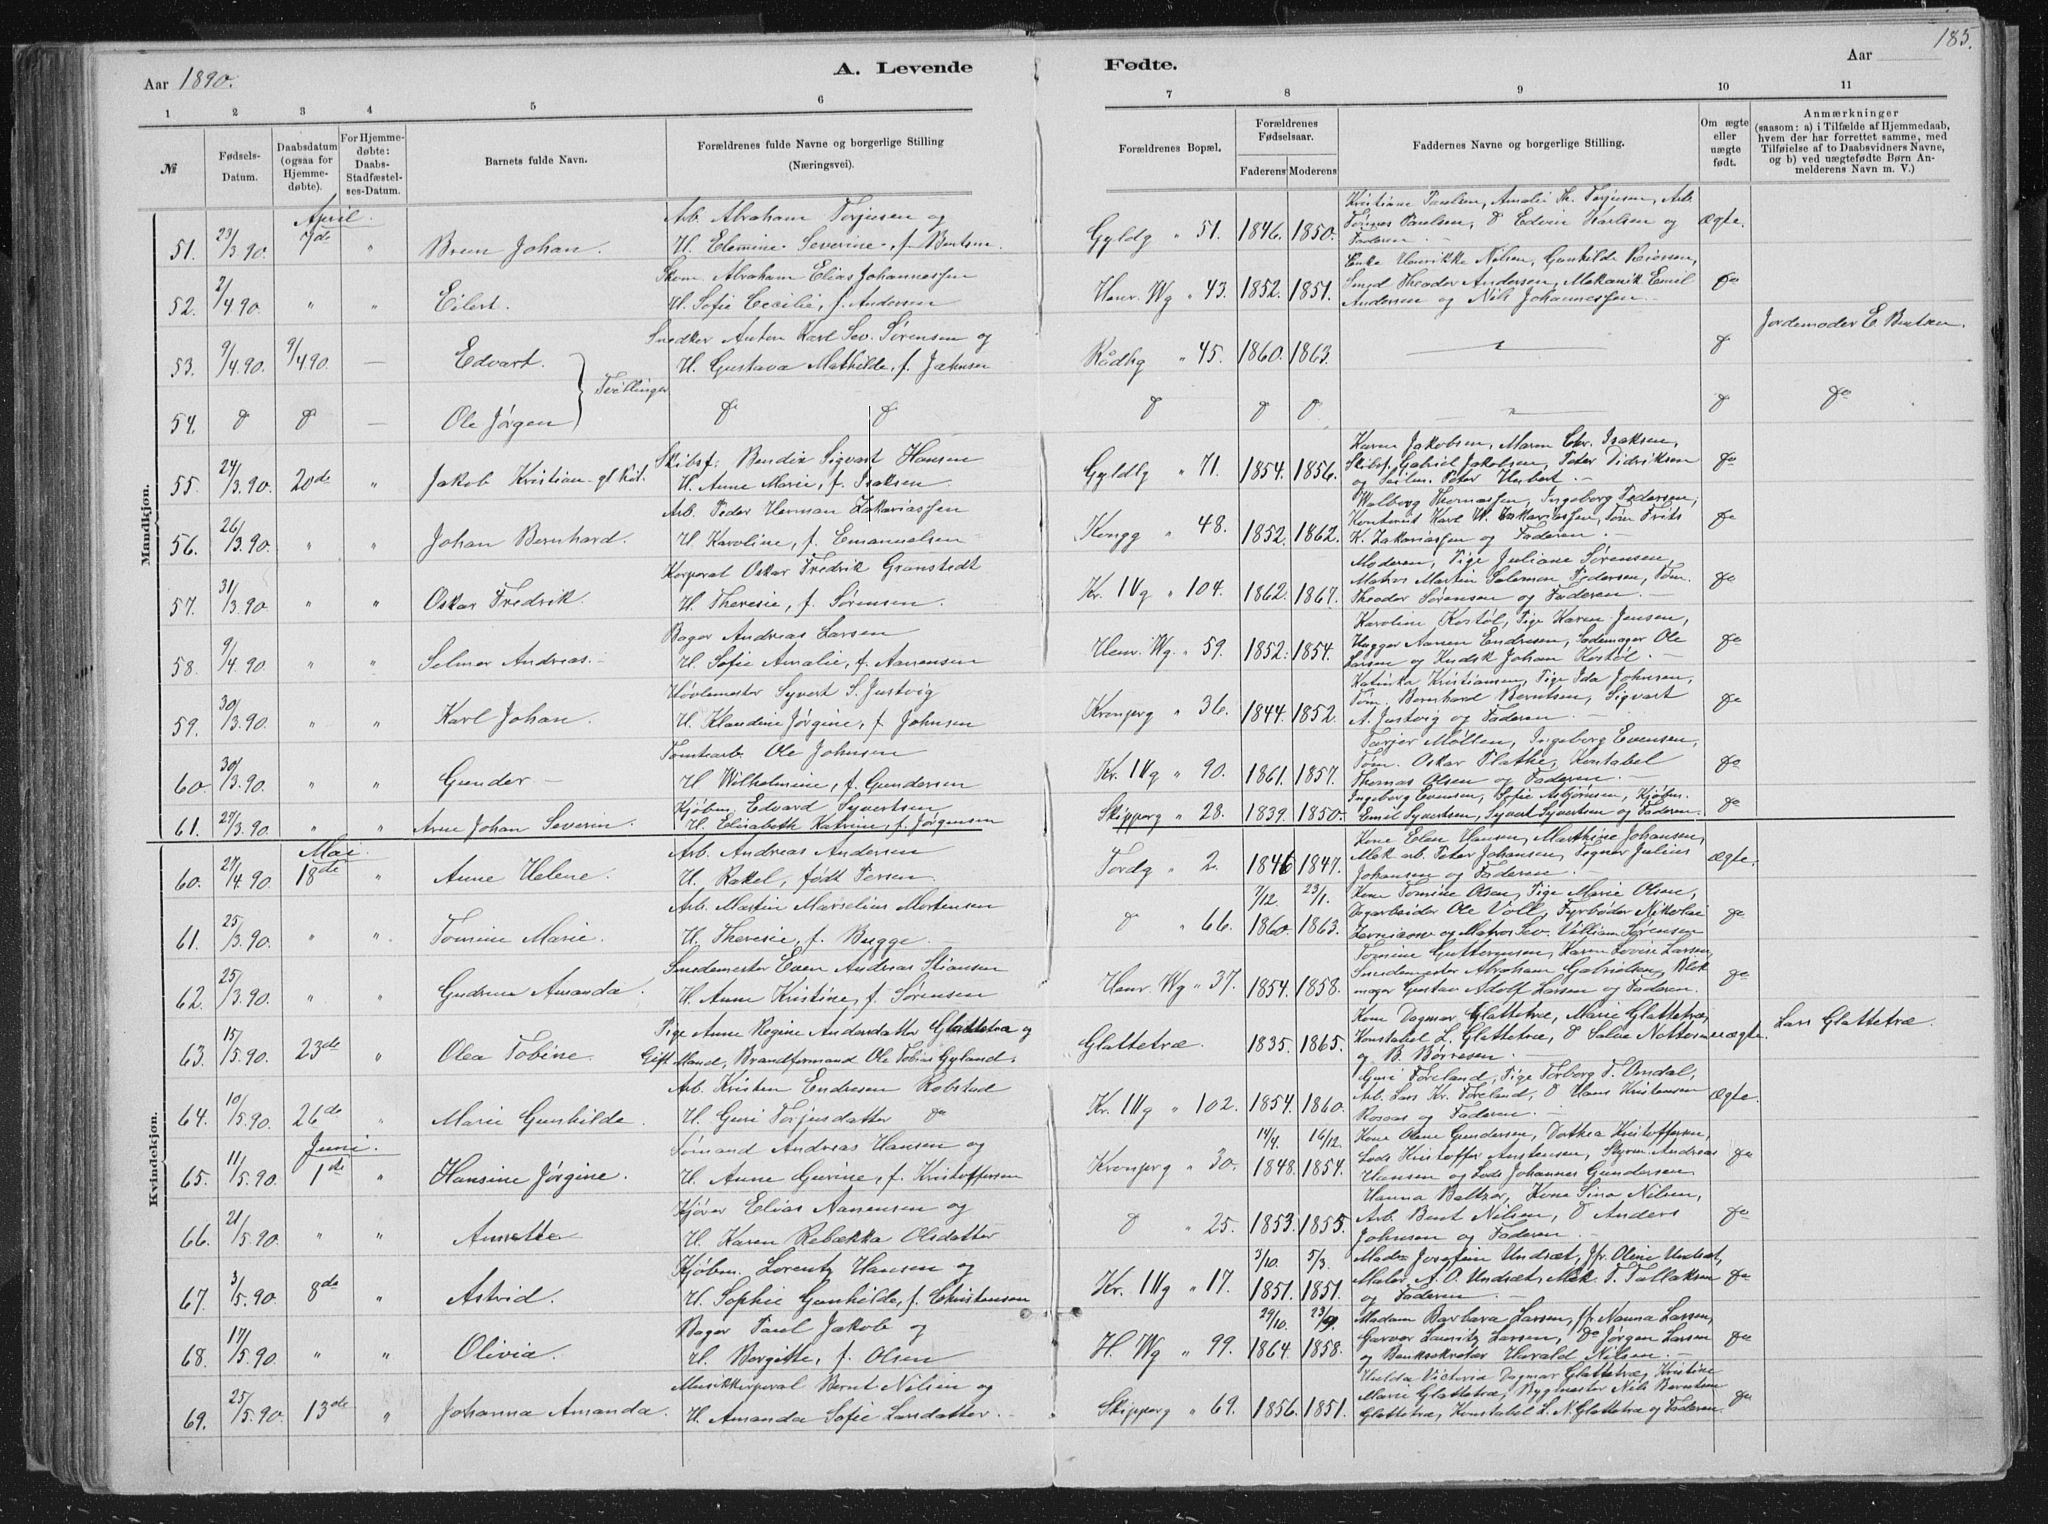 185.
Aar 1890.
A. Levende
Fødte.
Aar
1 2 3 4 5 6 7 8 9 10 11
№
Fødsels-Datum.
Daabsdatum (ogsaa for Hjemmedøbte).
For Hjemmedøbte: Daabs-Stadfæstelses-Datum.
Barnets fulde Navn.
Forældrenes fulde Navne og borgerlige Stilling (Næringsvei).
Forældrenes Bopæl.
Forældrenes Fødselsaar.
Faderens Moderens
Faddernes Navne og borgerlige Stilling.
Om ægte eller uægte født.
Anmærkninger
(saasom: a) i Tilfælde af Hjemmedaab, hvem der har forrettet samme, med Tilføielse af to Daabsvidners Navne, og b) ved uægtefødte Børn Anmelderens Navn m. V.)
Mandkjøn.
April.
Arb. Abraham Torjusen og
Kristiane Paulsen, Amalie Th. Torjusen, Arb.
51. 23/3.90. 7de " Johan. H. Elemine Severine, f. Bentsen Gyldg " 51. 1846. 1850. Tønnes Paulsen, d Edvin Karlsen og Ægte.
Faderen. —
Skom. Abraham Elias Johannessen
Enke Henrikke Nilsen, Gunhilde
52. 2/4.90. " " Eilert. H. Sofie Cecilie, f. Andersen Henr. Wg " 43. 1852. 1851. Smed Theodor Andersen, Mekanik Emil do
Andersen og Nils Johannessen
Snedker Anton Karl Sev. Sørensen og
Jordemoder E. Bentsen.
53. 9/4.90. 9/4.90. — Edvart. H. Gustava Mathilde, f. Jahnsen Rådhg " 45. 1860. 1863. — " — d
Tvillinger
54. d d — Ole Jørgen do do d d d — " — d do
Skibsf. Bendix Sigvart Hansen
Karen Jakobsen, Maren Chr. Isaksen,
55. 24/3.90. 20de " Jakob Kristian H. Anne Marie, f. Isaksen. Gyldlg " 71. 1854. 1856. Skibsf. Gabriel Jakobsen, Peter Didriksen do
og Seilm. Peter Herbert. —
Arb. Peder Herman Zakariassen
Walborg Thomassen, Ingeborg Pedersen,
56. 26/3.90. " " Johan Bernhard. H. Karoline, f. Emanuelsen Kongg " 48. 1852. 1862. Kontorist Karl W. Zakariassen, Tøm Frits do
K. Zakariassen og Faderen. —
Korporal Oskar Fredrik Granstedt
Moderen, Pige Juliane Sørensen
57. 31/3.90. " " Oskar Fredrik. H. Theresie, f. Sørensen. Kr. IVg " 104. 1862. 1867. Matros Martin Salomon Pedersen, Tøm. do
Theodor Sørensen og Faderen. —
Bager Andreas Larsen
Karoline Kostøl, Pige Karen Jensen,
58. 9/4.90. " " Selmer Andreas. H. Sofie Amalie, f. Aanensen Henr. Wg. " 59. 1852. 1854. Hugger Aanen Endresen, Sademager Ole do
Larsen og Kudsk Johan Kostøl. —
Høvlemester Syvert S. Justvig
Katinka Kristiansen, Pige Ida Johnsen,
59. 30/3.90. " " Karl Johan. H. Klaudine Jørgine, f. Johnsen Kronprg " 36. 1844. 1852. Tøm. Bernhard Berntsen, Sigvart do
A. Justvig og Faderen. —
Tomtearb. Ole Johnsen
Tarjer Møllen, Ingeborg Evensen,
60. 30/3.90. " " Gunder — H. Wilhelmine, f. Gundersen Kr. IVg " 90. 1861. 1857. Tøm. Oskar Plathe, Konstabel do
Thomas Olsen og Faderen. —
Kjøbm. Edvard Syvertsen
Ingeborg Evensen, Sofie Asbjørnsen, Kjøbm.
61. 27/3.90. " " Arne Johan Severin. H. Elisabeth Katrine, f. Jørgensen Skipperg " 28. 1839. 1850. Emil Syvertsen, Syvert Syvertsen og Faderen. do
Kvindekjøn.
Mai.
Arb. Andreas Andersen
Kone Elen Hansen, Marthine Johansen,
60. 27/4.90. 18de " Anne Helene. H. Rakel, født Persen. Tordg " 2. 1846 1847. Mek. arb. Peter Johansen, Tegner Julius Ægte.
Johansen og Faderen. —
Arb. Martin Marselius Mortensen
7/12. 23/1. Kone Tomine Olsen, Pige Marie Olsen,
61. 25/3.90. " " Tomine Marie. H. Theresie, f. Bugge. d " 66. 1860. 1863. Dagarbeider Ole Voll, Fyrbøder Nikolai do
og Matros Sev. Villiam Sørensen
Smedemester Even Andreas Stiansen
Tomine Guttormsen, Karen Lovise Larsen,
62. 25/3.90. " " Gudrun Amanda. H. Anne Kristine, f. Sørensen Henr. Wg " 37. 1854. 1858. Smedemester Abraham Gabrielsen, Blokmager Gustav Adolf Larsen og Faderen. do
Pige Anne Regine Andersdatter Glattetræ og
Kone Dagmar Glattetræ, Marie Glattetræ,
63. 15/5.90. 23de " Olea Tobine. Gift Mand, Brandformand Ole Tobias Gyland. Glattetræ. 1835. 1865. Konstabel L. Glattetræ, d Salve uægte. Lars Glattetræ.
og B. Børresen.
Arb. Kristen Endresen Robstad
Guri Foreland, Pige Torborg T. Omdal,
64. 10/5.90. 26de " Marie Gunhilde. H. Guri Torjusdatter do Kr. IVg " 102. 1854. 1860. Arb. Lars Kr. Foreland, d Hans Kristensen Ægte.
Rosaas og Faderen. —
Juni.
Sømand Andreas Hansen og
14/4. 16/12. Kone Olene Gundersen, Dorthea Kristoffersen,
65. 11/5.90. 1de " Hansine Jørgine. H. Anne Gurine, f. Kristoffersen Kronprg " 30. 1848. 1854. Lods Kristoffer Anstensen, Styrm. Andreas do
Hansen og Lods Johannes Gundersen.
Kjører Elias Aanensen og
Hanna Baltzer, Kone Sina Nilsen,
66. 21/5.90. " " Annette H. Karen Rebækka Olsdatter d " 25. 1853. 1855. Arb. Bent Nilsen, d Anders do
Johnsen og Faderen. —
Kjøbm. Lorentz Hansen og
3/10. 5/3. Madm Josefine Undsæt, Jfr. Oline Undsæt,
67. 3/5.90. 8de " Astrid. H. Sophie Gunhilde, f. Christensen Kr. IVg " 17. 1851. 1851. Maler A. O. Undsæt, Mek. T. Tallaksen do
og Faderen. —
Bager Paul Jakob og
29/10. 23/9. Madam Barbara Larsen, Jfr. Nanna Larsen,
68. 17/5.90. " " Olivia. H. Bergitte, f. Olsen H. Wg " 99. 1864. 1858. Garver Lauritz Larsen, do Jørgen Larsen do
og Banksekretær Harald Nilsen. —
Musikkorporal Bernt Nilsen og
Hulda Victoria Dagmar Glattetræ, Kristine
69. 25/5.90. 13de " Johanna Amanda. H. Amanda Sofie Larsdatter. Skipperg " 69. 1856. 1851. Marie Glattetræ, Bygmester Nils Berntsen do
Glattetræ, Konstabel L. N. Glattetræ og Faderen.